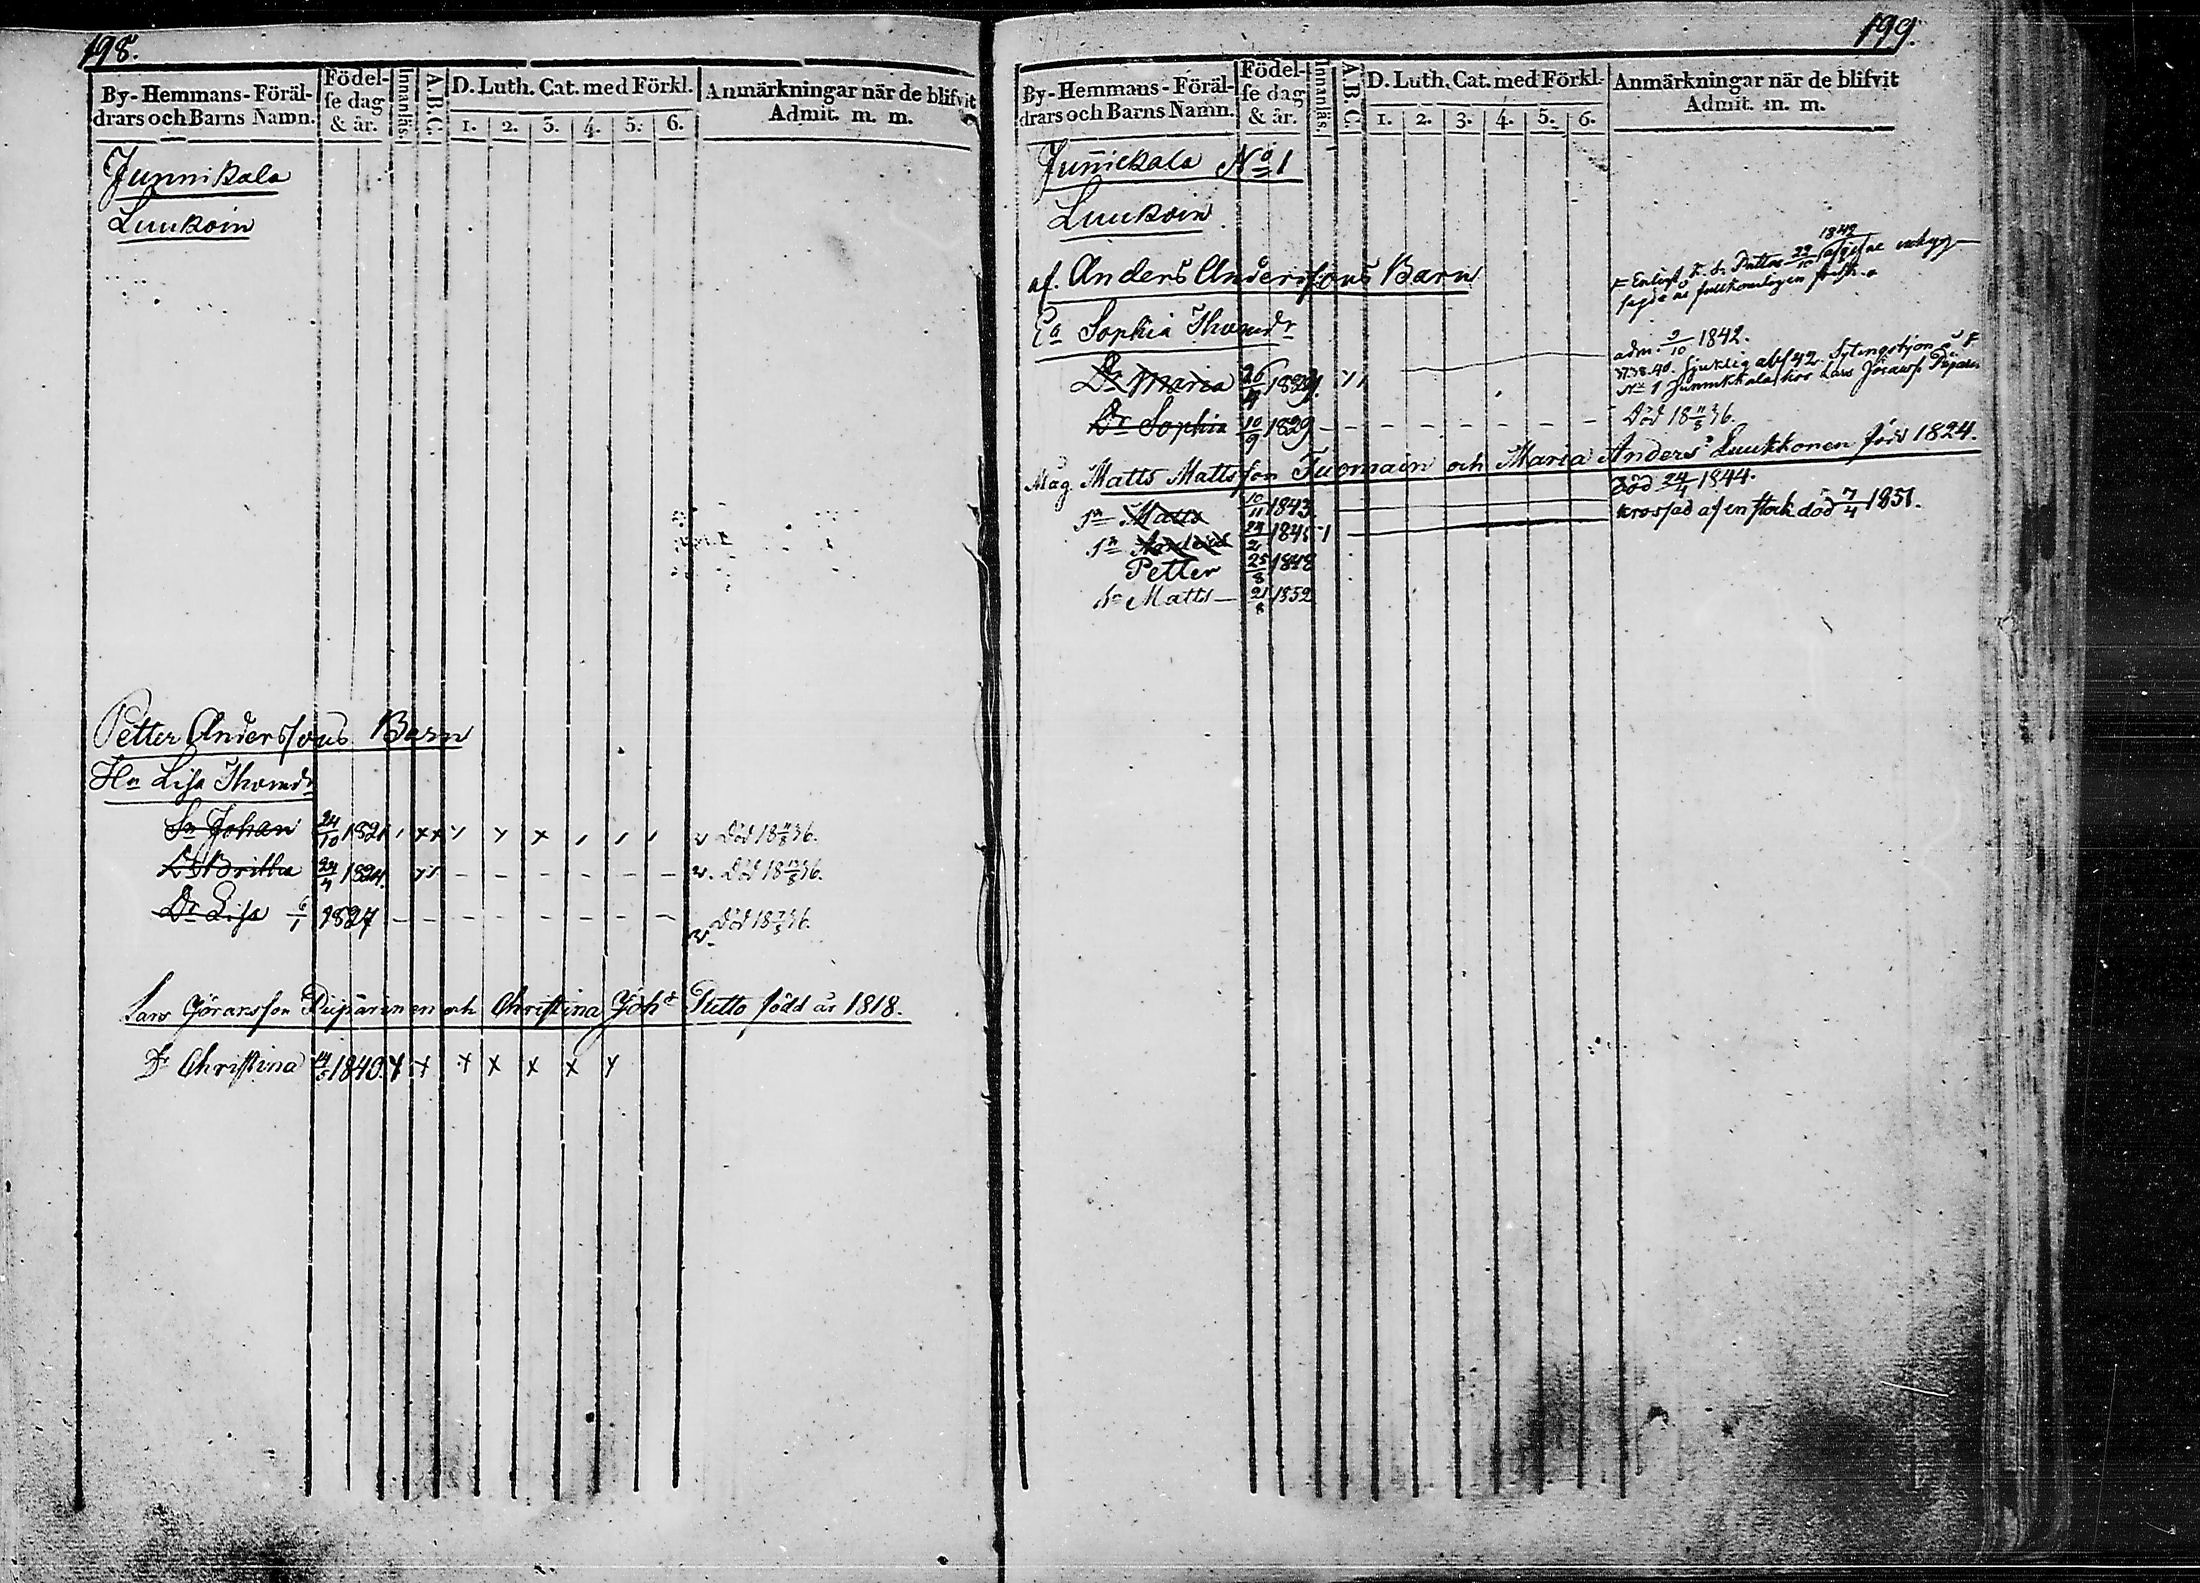 198.
By-Hemmans-Föräl-
drars och Barns Namn.
Födel-
se dag
& år.
Innanläs.
A.B.C.
D. Luth. Cat. med Förkl.
1. 2. 3. 4. 5. 6.
Anmärkningar när de blifvit
Admit. m. m.
Junnikala
Luukoin
Petter Anderssons Barn
Hu Lisa Thomdr
Sn Johan 24/10 1821 Död 18 36.
Dr Britha 24/4 1824. Död 18 36.
Dr Lisa 6/1 1827 Död 18 36.
Lars Göransson Piipärinen och Christina Johd Putto född år 1818.
Dr Christina 1840.
199.
By-Hemmans-Föräl-
drars och Barns Namn.
Födel-
se dag
& år.
Innanläs.
A.B.C.
D. Luth. Cat. med Förkl.
1. 2. 3. 4. 5. 6.
Anmärkningar när de blifvit
Admit. m. m.
Junickala No 1
Luukoin
af. Anders Anderssons Barn
1842
Enligt 22/10
Ea Sophia Thomdr
adm. 9/10 1842.
37.38.40. Sjuklig
Dr Maria 26/4
No 1 Junnikkala hos Lars
Dr Sophia 10/9 1829 Död 18 36.
Måg Matts Mattsson Tuomain och Maria Andersd Luukkonen född 1824.
Sn Matts 10/11 1843 Död 24/4 1844.
Sn 1845 krossad af en stock död 7/4 1851.
Petter 25/8 1848
Sn Matts 21/8 1852